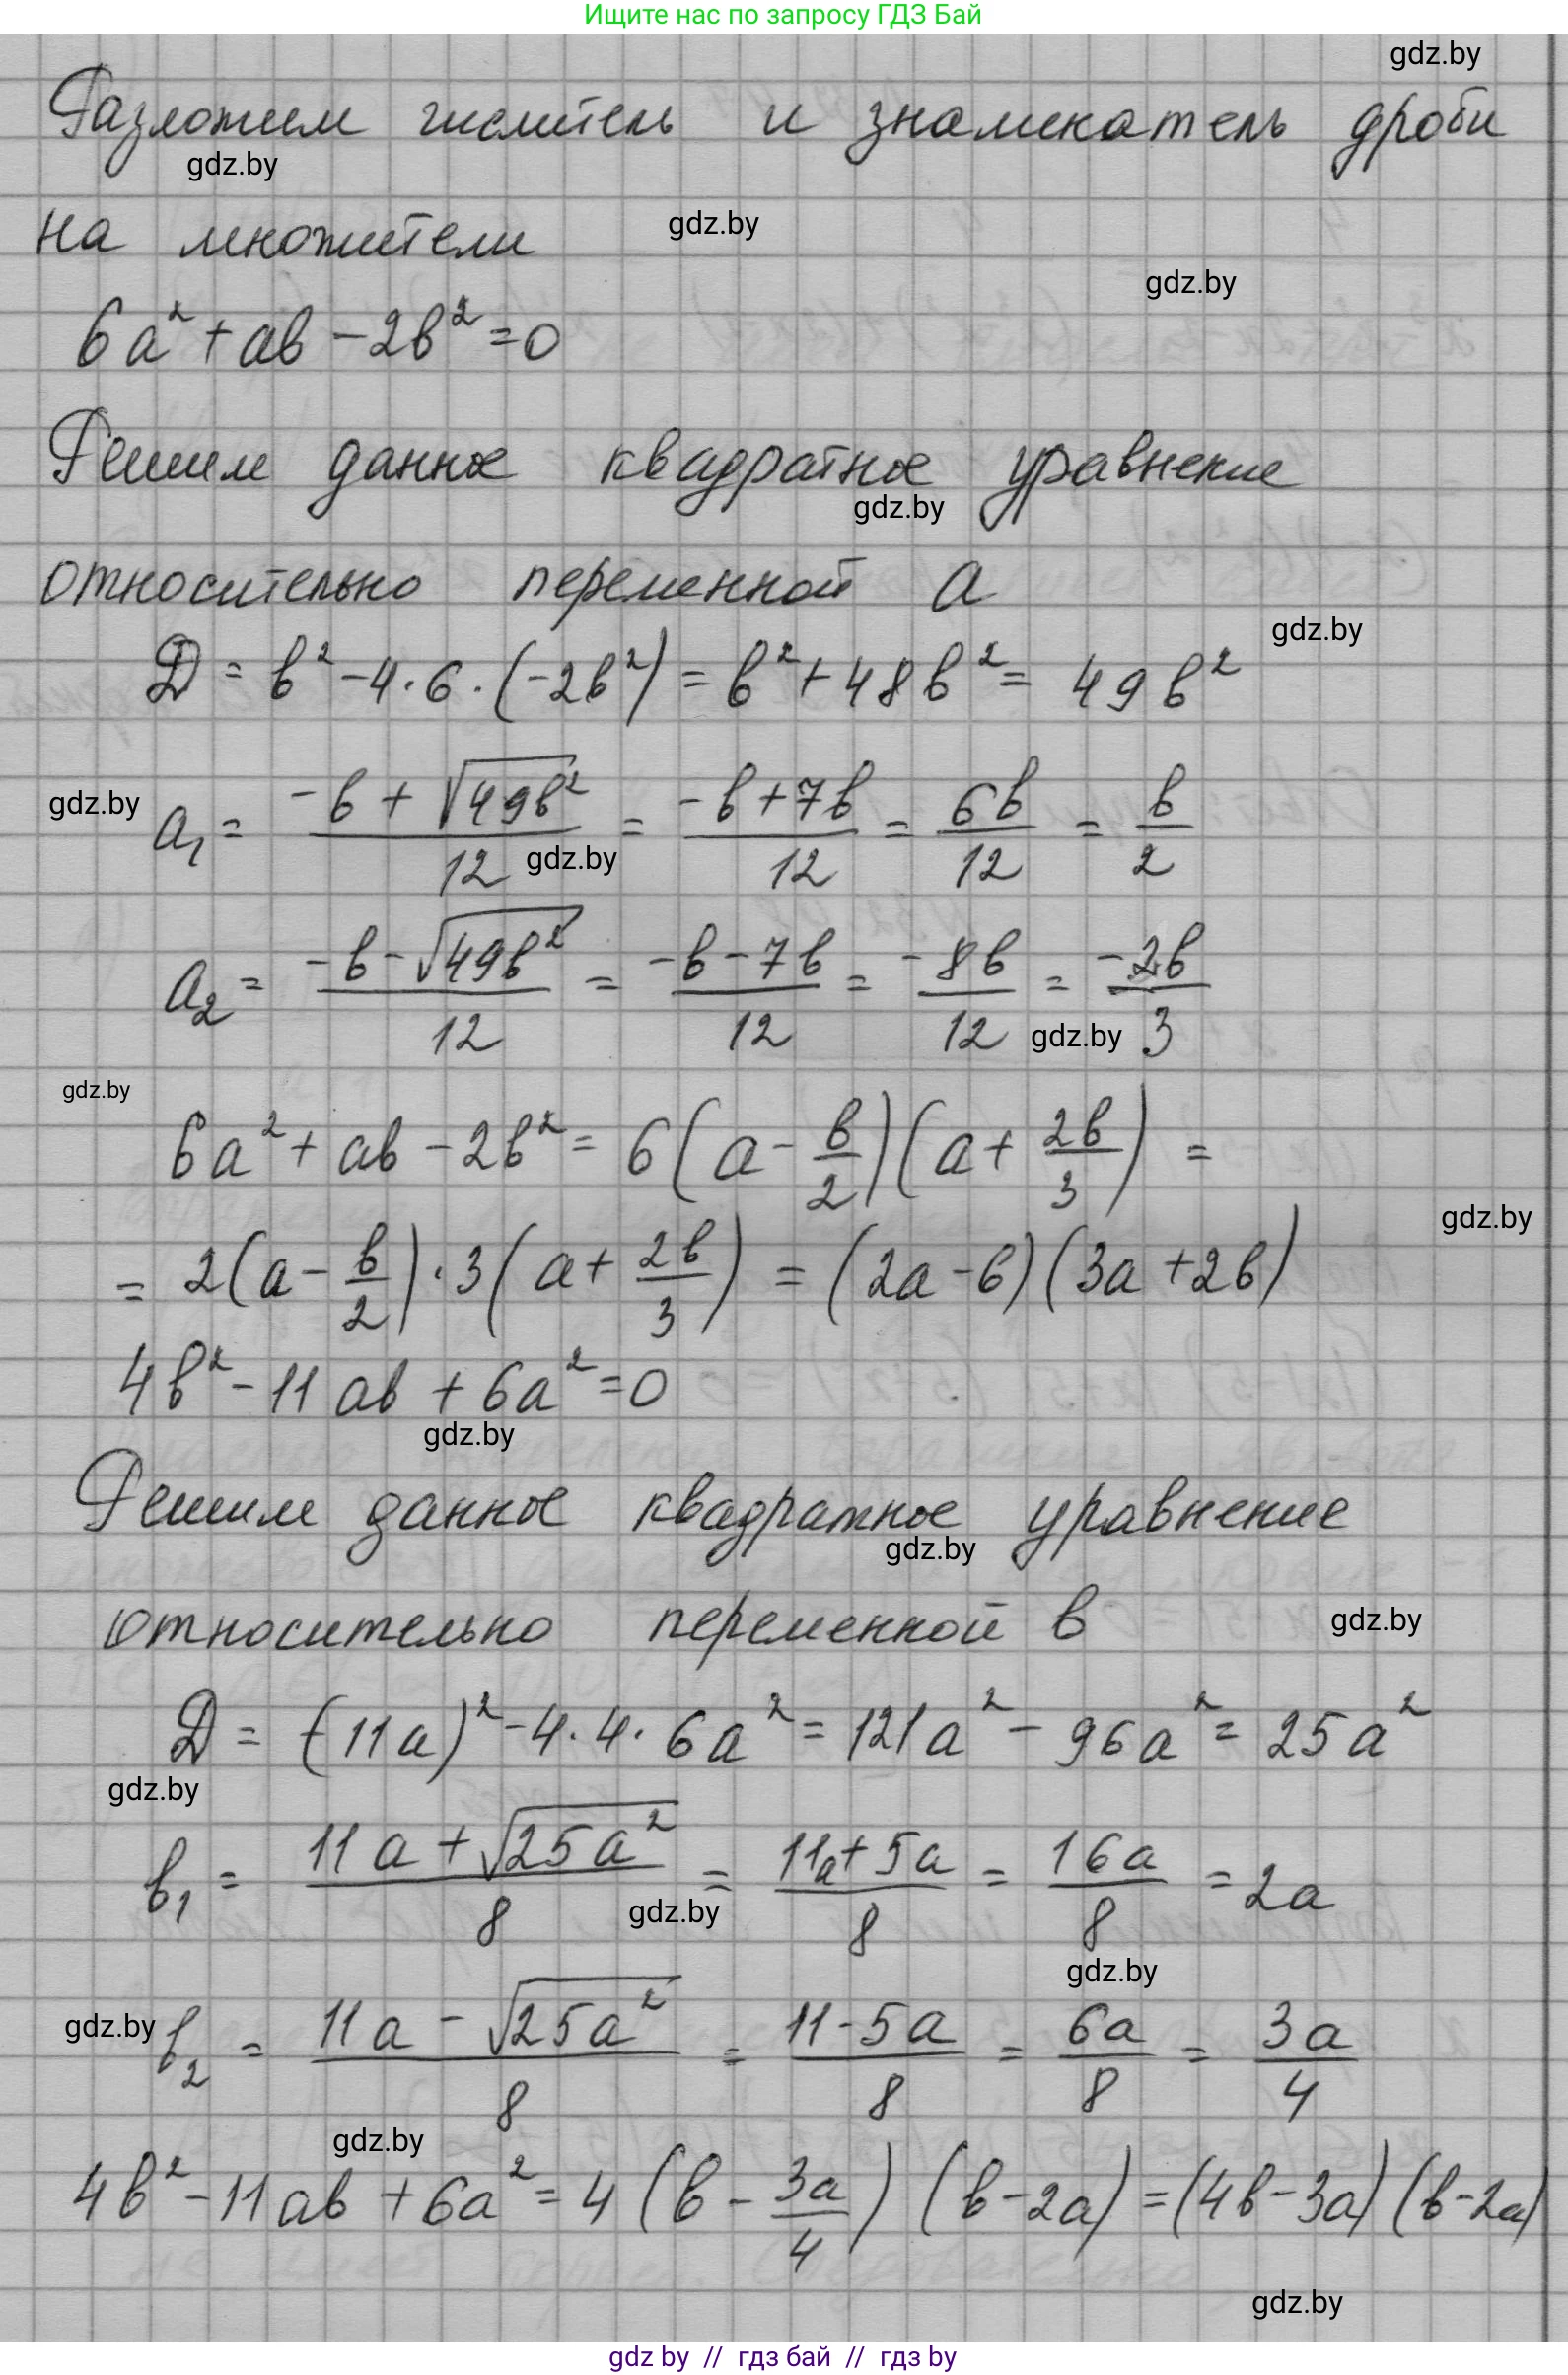 Ищите нас по запросу ГДЗ Бай
gdz.by
Разложим числитель и знаменатель дроби
gdz.by
на множители
gdz.by
gdz.by
6a² + ab - 2b² = 0
Решим данное квадратное уравнение
gdz.by
относительно переменной a
gdz.by
D = b² - 4·6·(-2b²) = b² + 48b² = 49b²
gdz.by
a₁ = (-b + √(49b²))/12 = (-b + 7b)/12 = 6b/12 = b/2
gdz.by
a₂ = (-b - √(49b²))/12 = (-b - 7b)/12 = -8b/12 = -2b/3
gdz.by
gdz.by
6a² + ab - 2b² = 6(a - b/2)(a + 2b/3) =
gdz.by
= 2(a - b/2)·3(a + 2b/3) = (2a - b)(3a + 2b)
4b² - 11ab + 6a² = 0
gdz.by
Решим данное квадратное уравнение
gdz.by
относительно переменной b
gdz.by
D = (-11a)² - 4·4·6a² = 121a² - 96a² = 25a²
gdz.by
b₁ = (11a + √(25a²))/8 = (11a + 5a)/8 = 16a/8 = 2a
gdz.by
gdz.by
gdz.by
b₂ = (11a - √(25a²))/8 = (11 - 5a)/8 = 6a/8 = 3a/4
gdz.by
4b² - 11ab + 6a² = 4(b - 3a/4)(b - 2a) = (4b - 3a)(b - 2a)
gdz.by
gdz by // гдз бай // гдз by